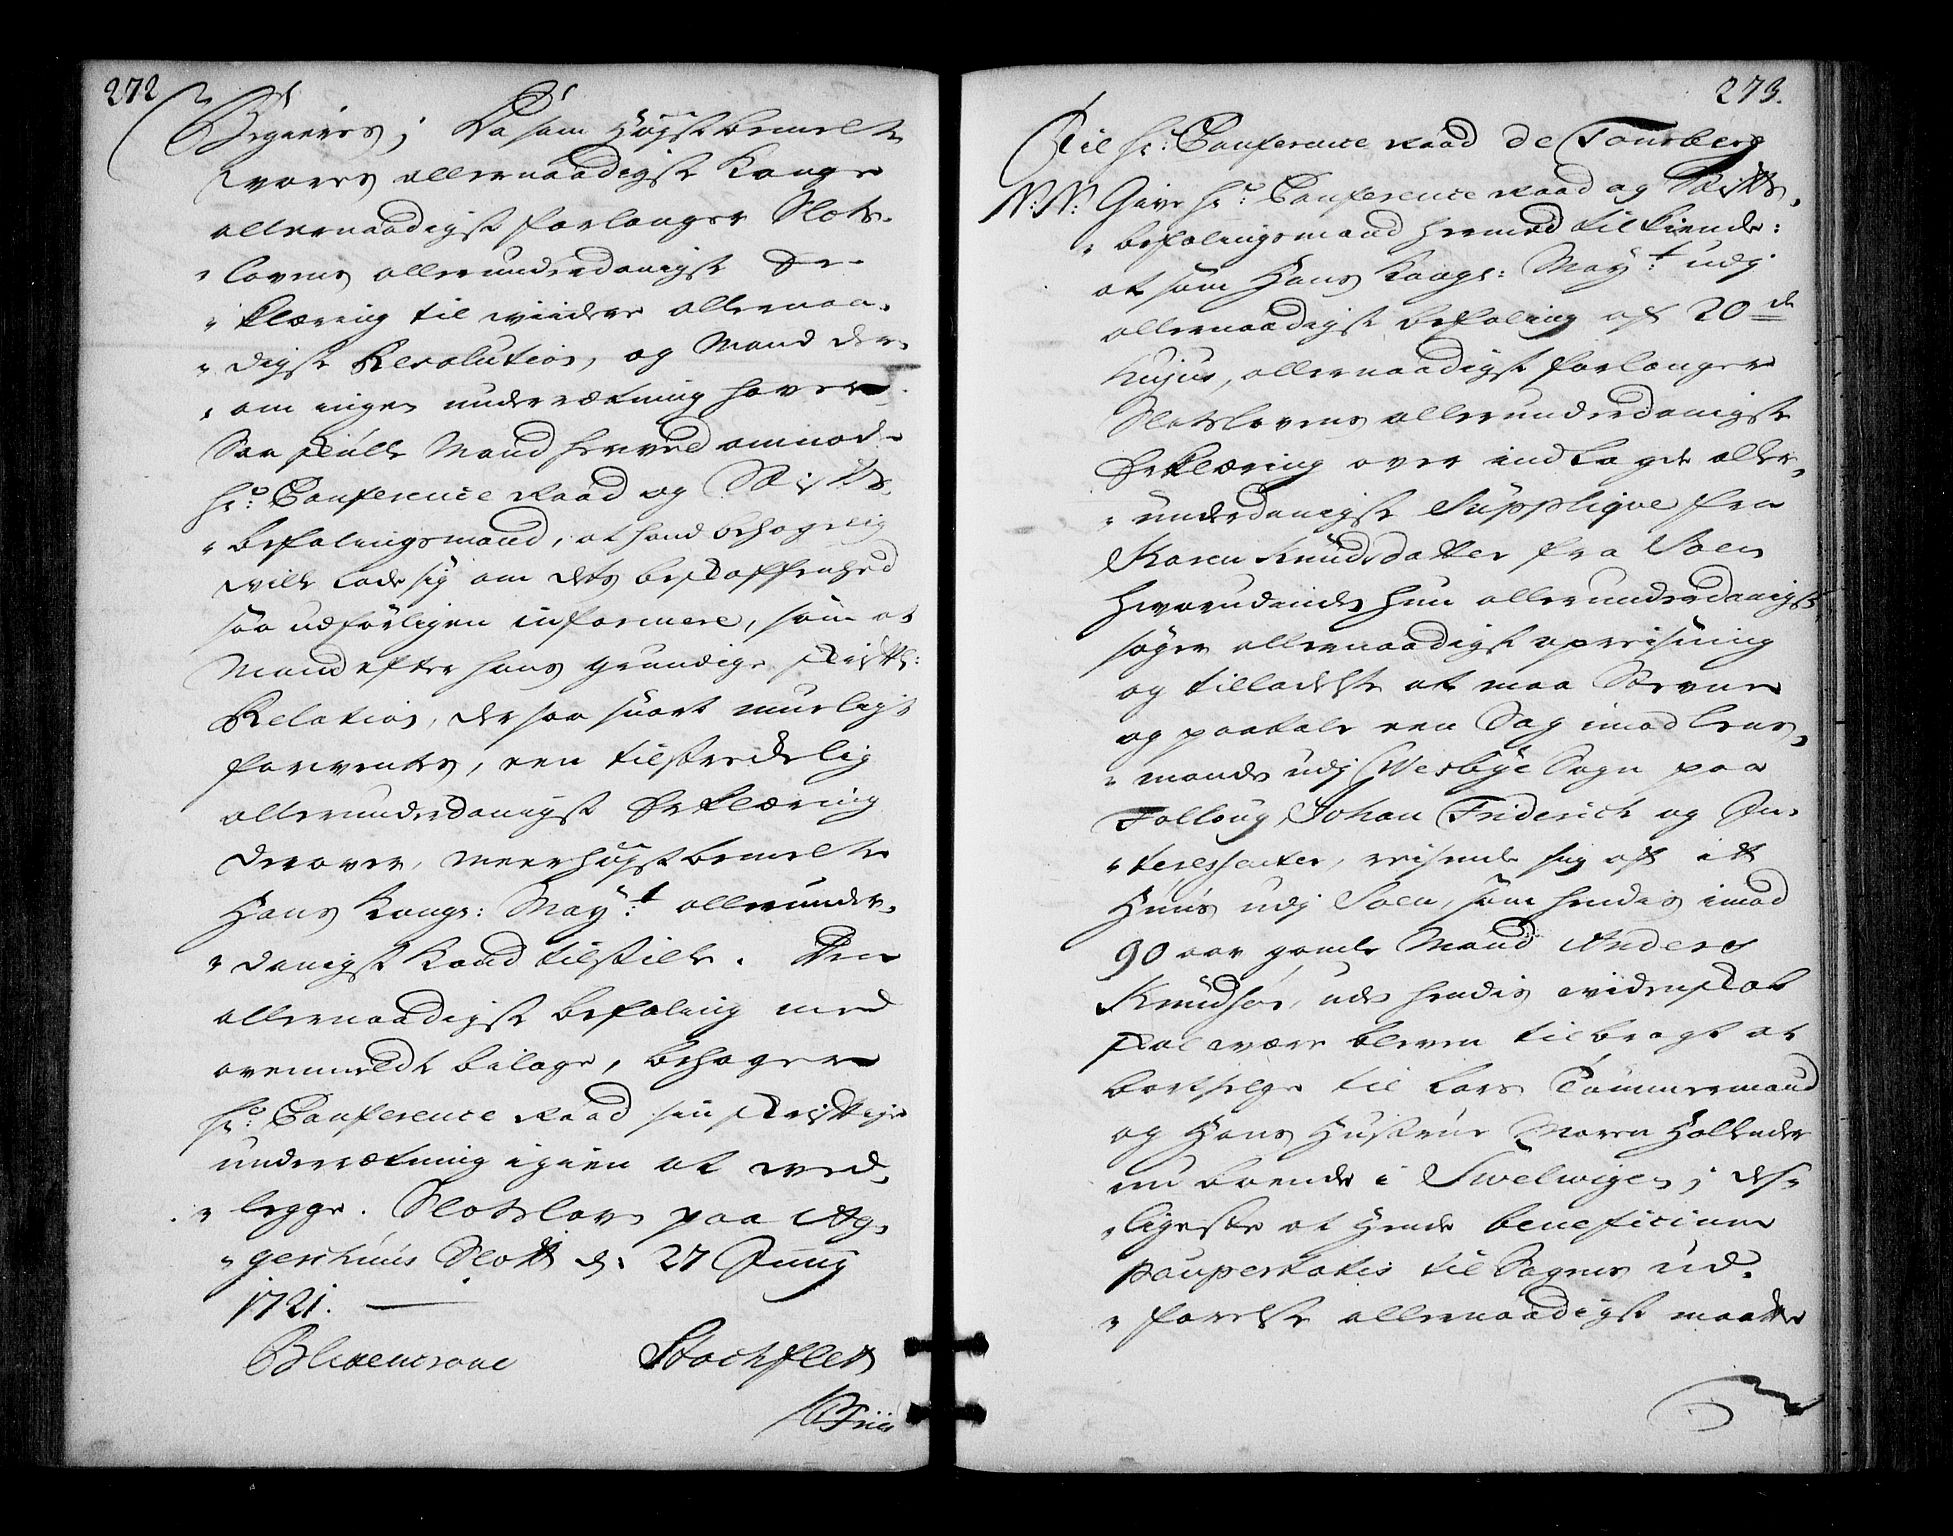 272
Begieres; Da som Høystbemelte
vores allernaadigste Konge
allernaadigst forlanger Slots-
lovens allerunderdanigst Er-
klæring til viidere allernaa-
digst Resolution, og Mand der-
om ingen underrætning haver,
Saa skulle Mand herved ombede
hr: Conference Raad og Stifts-
befalingsmand, at hand behagelig
ville lade sig om dets beskaffenhed
saa udførligen informere, som at
Mand efter hans grundige skriftl:
Relation, der saa snart mueligt
forventes, een tilstrædelig
allerunderdanigst Erklæring
derover, meerhøystbemelte
Hans Kongl: May:t allerunder-
danigst kand tilstille. Den
allernaadigste befaling med
ovenmeldte bilage, behager
hr: Conference Raad sin skriftlige
underrætning igien at ved-
legge. Slotslov paa Ag-
gershuus Slott d: 27 Juny
1721.
Blixencrone Stockfleth
Friis
273.
Til hr: Conference Raad de Tonsberg
N:N: Give hr: Conference Raad og Stifts-
befalingsmand hermed tilkiende:
at som Hans Kongl: May:t udj
allernaadigst befaling af 20de
hujus, allernaadigst forlanger
Slotslovens allerunderdanigste
Erklæring over indlagde aller-
underdanigst Supplique fra
Karen Knudsdatter fra Soen
hvorudinde hun allerunderdanigst
søger allernaadigst opreisning
og tilladelse at maa Stevne
og paatale een Sag imod Lens-
mands udj Westbye Sogn paa
Folloug, Johan Friderich og In-
teressenter, reisende sig af it
Huus udj Soen, som hendis imod
90 aar gamle Mand Anders
Knudsøn, uden hendis videnskab
skal være bleven tilbragt at
bortselge til Lars Tømmermand
og Hans Hustrue Maren Hollender
nu boende i Swelwigen; des-
ligeste at hende beneficium
paupertatis til Sagens ud-
førelse allernaadigst maatte